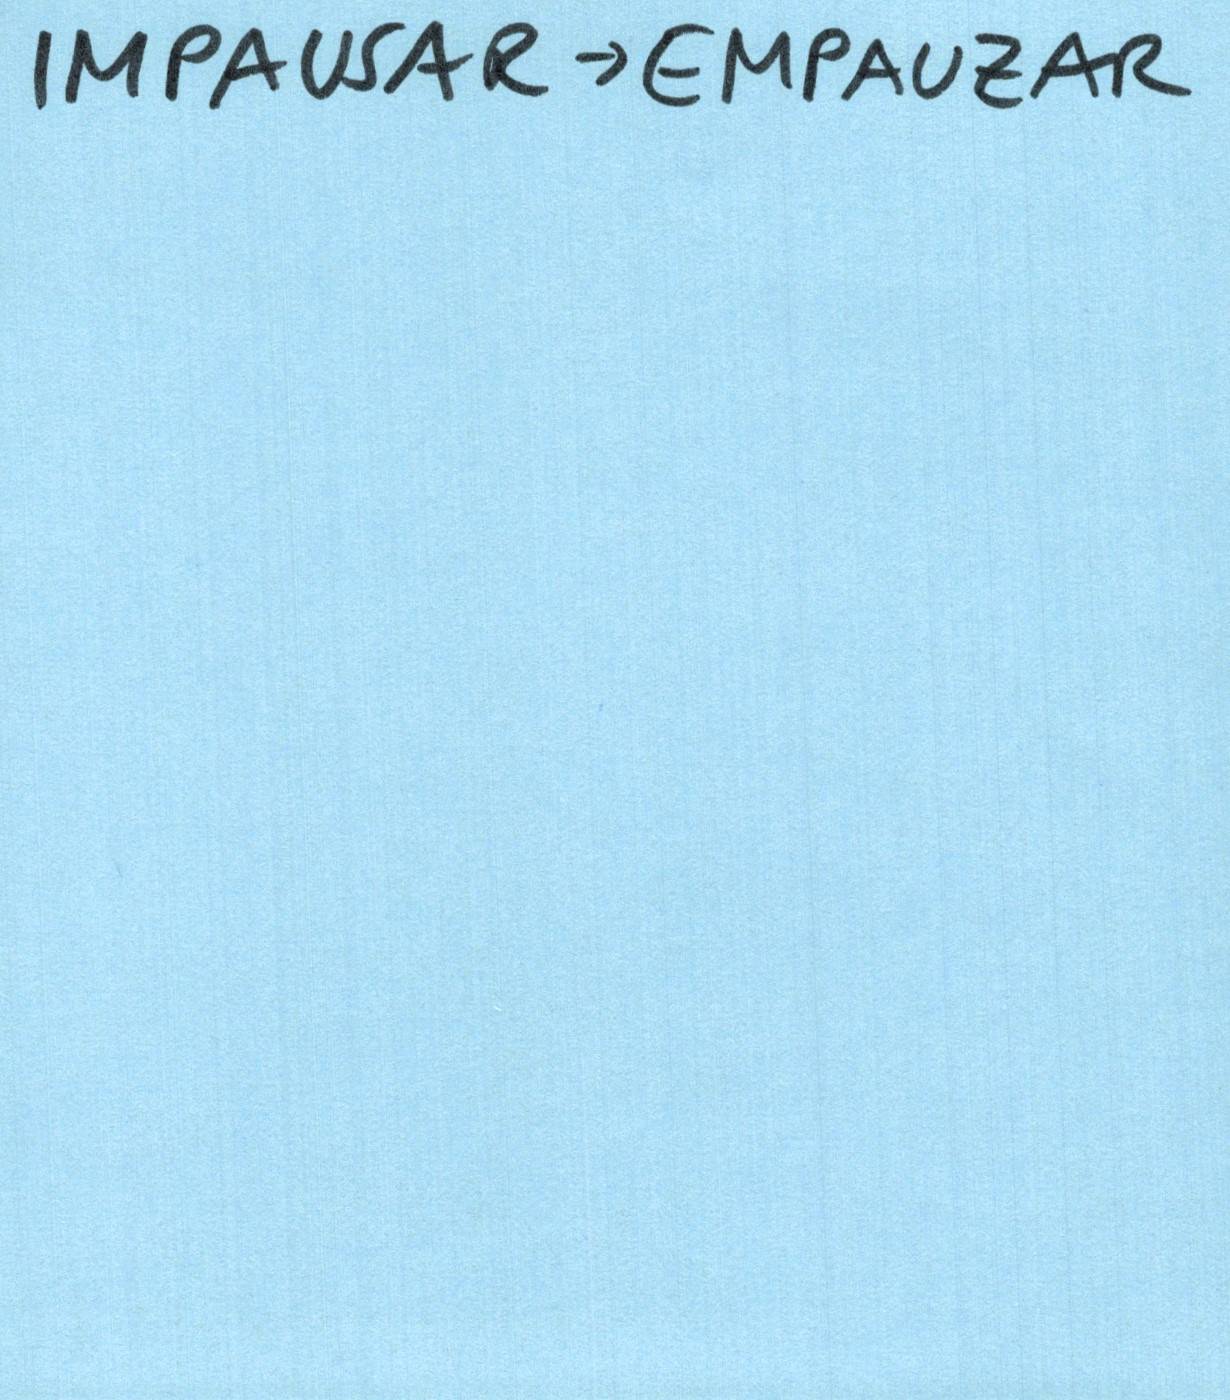 IMPAUSAR → EMPAUZAR